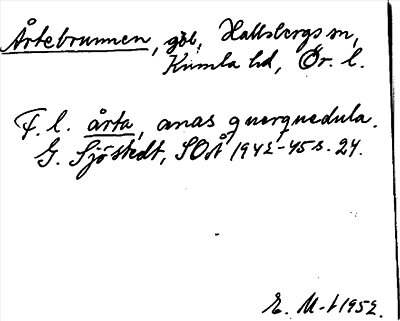 Årtebrunnen, gbl, Hallsbergs sn,
Kumla hd, Ör. l.
F. l. årta, anas querquedula.
G. Sjöstedt, SOÅ 1942-45 s. 24.
E. M-t 1952.